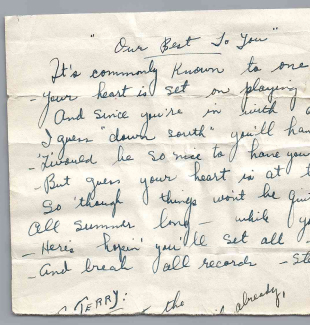 "Our Best To You"
It's commonly known to one
- Your heart is set on playing
And since you're in with a
I guess "down south" you'll have
- 'Twould be so nice to have you
- But guess your heart is at t
So 'though things won't be qui
all summer long - while yo
- Here's hopin' you'll set all
- And break all records - Ste
TERRY:
the already,